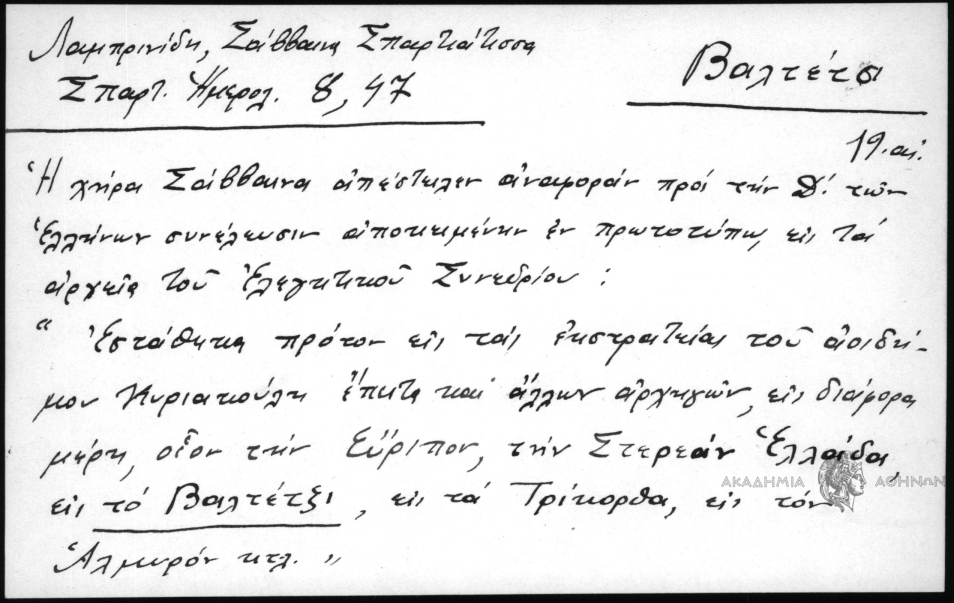 Λαμπρινίδη, Σάββαινα Σπαρτιάτισσα
Σπαρτ. Ημερολ. 8, 47
Βαλτέτσι
19. αἰ.
Ἡ χήρα Σάββαινα ἀπέστειλεν ἀναφοράν πρός τήν Δ'. τῶν
Ἑλλήνων συνέλευσιν ἀποκειμένην ἐν πρωτοτύπῳ εἰς τά
ἀρχεῖα τοῦ Ἐλεγκτικοῦ Συνεδρίου :
" Ἐστάθηκα πρότον εἰς τάς ἐκστρατείας τοῦ ἀοιδή-
μου Κυριακούλη ἔπειτα καί ἄλλων ἀρχηγῶν, εἰς διάφορα
μέρη, οἷον τήν Εὔριπον, τήν Στερεάν Ἑλλάδα,
εἰς τό Βαλτέτξι, εἰς τά Τρίκορθα, εἰς τόν
Ἁλμυρόν κτλ. "
ΑΚΑΔΗΜΙΑ ΑΘΗΝΩΝ